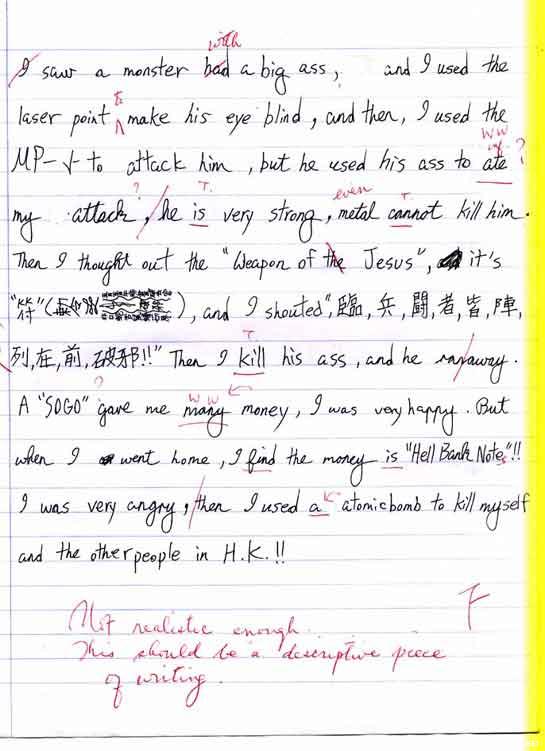 with
I saw a monster had a big ass, and I used the
to
laser point make his eye blind, and then, I used the
WW
MP-5 to attack him, but he used his ass to ate ?
? T. even T.
my attack, he is very strong, metal cannot kill him.
Then I thought out the "Weapon of the Jesus", it's
"符"( ), and I shouted",臨,兵,鬪,者,皆,陣,
T.
列,在,前,破邪!!" Then I kill his ass, and he ran away.
? WW
A "SOGO" gave me many money, I was very happy. But
when I went home, I find the money is "Hell Bank Notes"!!
I was very angry, then I used a atomic bomb to kill myself
and the other people in H.K.!!
F
Not realistic enough.
This should be a descriptive piece
of writing.